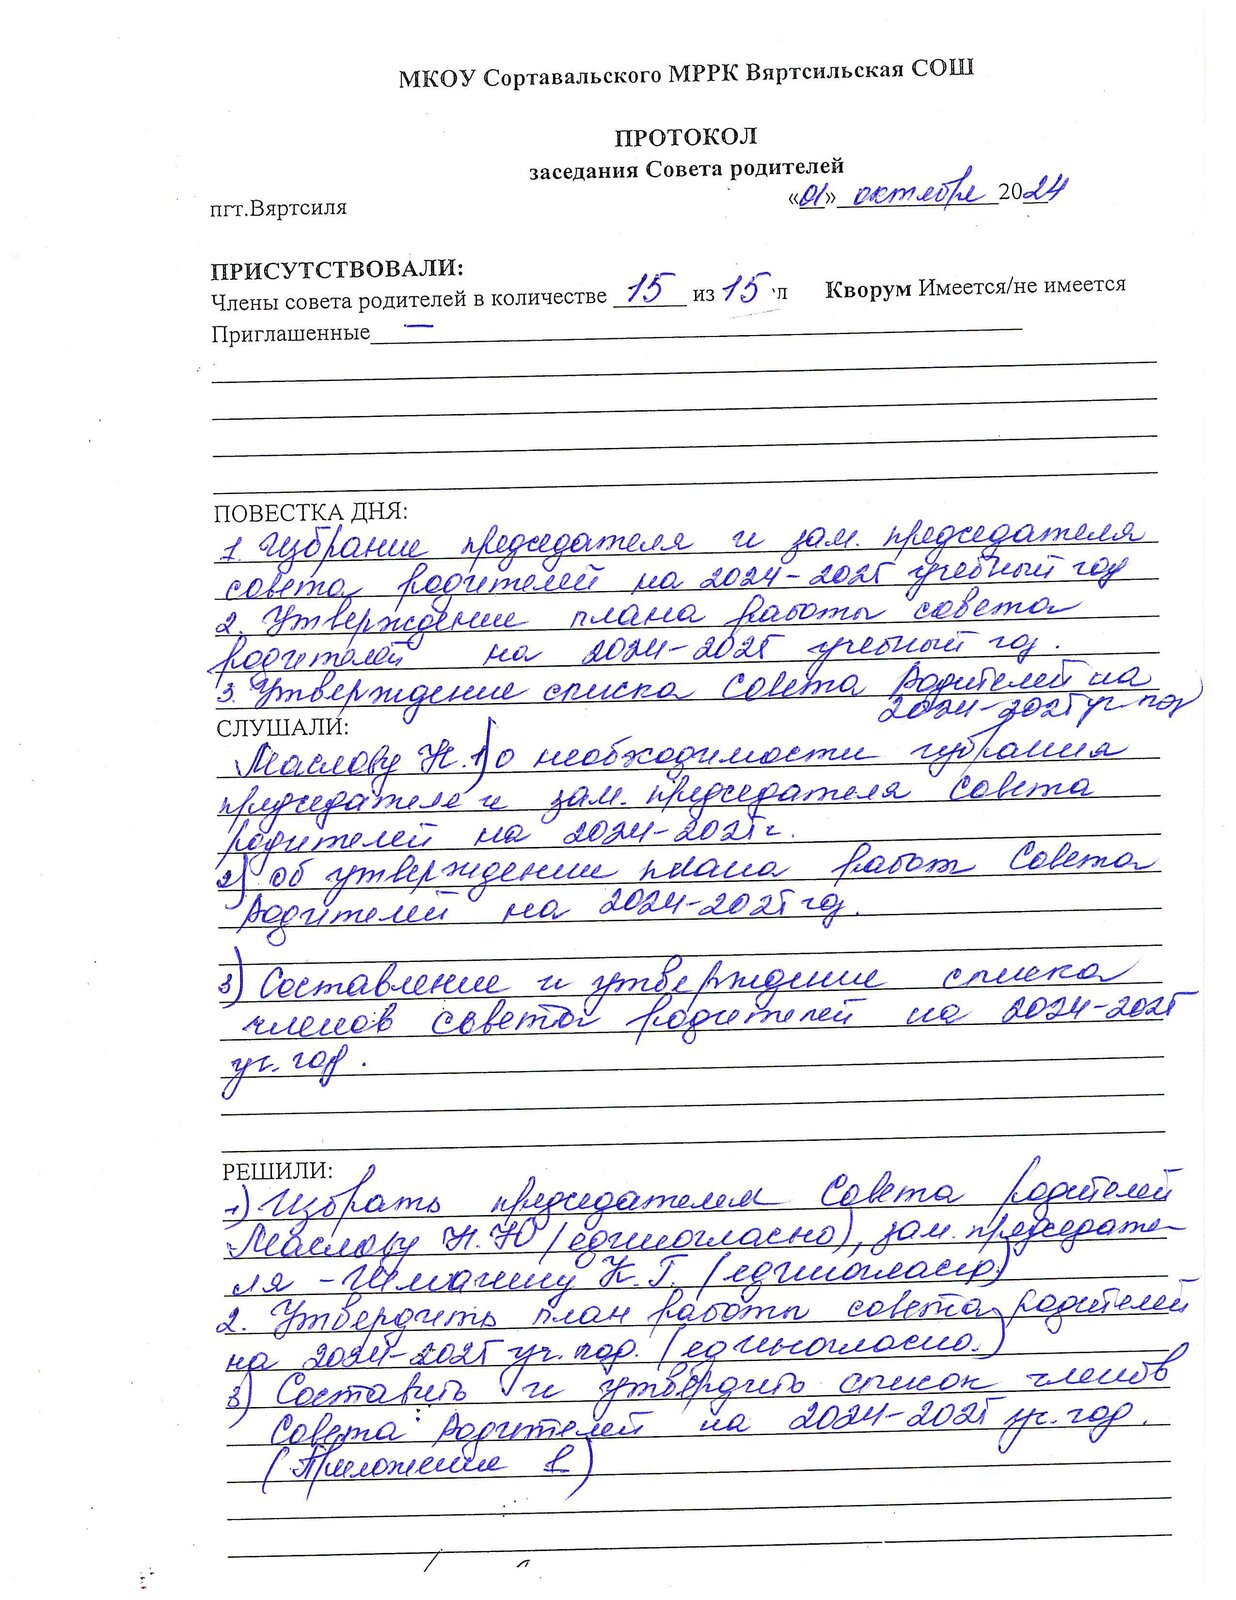 МКОУ Сортавальского МРРК Вяртсильская СОШ
ПРОТОКОЛ
заседания Совета родителей
пгт.Вяртсиля «01» октября 2024
ПРИСУТСТВОВАЛИ:
Члены совета родителей в количестве 15 из 15 л Кворум Имеется/не имеется
Приглашенные —
ПОВЕСТКА ДНЯ:
1. Избрание председателя и зам. председателя
совета родителей на 2024-2025 учебный год
2. Утверждение плана работы совета
родителей на 2024-2025 учебный год.
3. Утверждение списка Совета Родителей на
2024-2025 уч. год
СЛУШАЛИ:
Маслову Н. 1) о необходимости избрания
председателя и зам. председателя совета
родителей на 2024-2025 г.
2) об утверждении плана работ Совета
Родителей на 2024-2025 год.
3) Составление и утверждение списка
членов совета родителей на 2024-2025
уч. год.
РЕШИЛИ:
1) Избрать председателем Совета родителей
Маслову Н.Ю (единогласно), зам. председате-
ля - К.Г. (единогласно)
2. Утвердить план работы совета родителей
на 2024-2025 уч. год. (единогласно.)
3) Составить и утвердить список членов
Совета Родителей на 2024-2025 уч. год.
(Приложение 1)